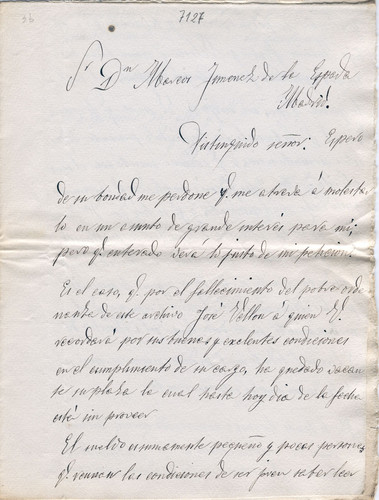 36
7127
Sr Dn Marcos Jimenez de la Espada
Madrid.
Distinguido señor: Espero
de su bondad me perdone q. me atreva á molestar
lo en un asunto de grande interés para mi,
pero q. enterado verá lo justo de mi peticion.
Es el caso, q. por el fallecimiento del pobre orde
nanza de este archivo José Vellon á quien V.
recordará por sus buenas y exelentes condiciones
en el cumplimiento de su cargo, ha quedado vacan
te su plaza la cual hasta hoy dia de la fecha
está sin proveer
El sueldo sumamente pequeño y pocas personas
q. reunan las condiciones de ser joven saber leer